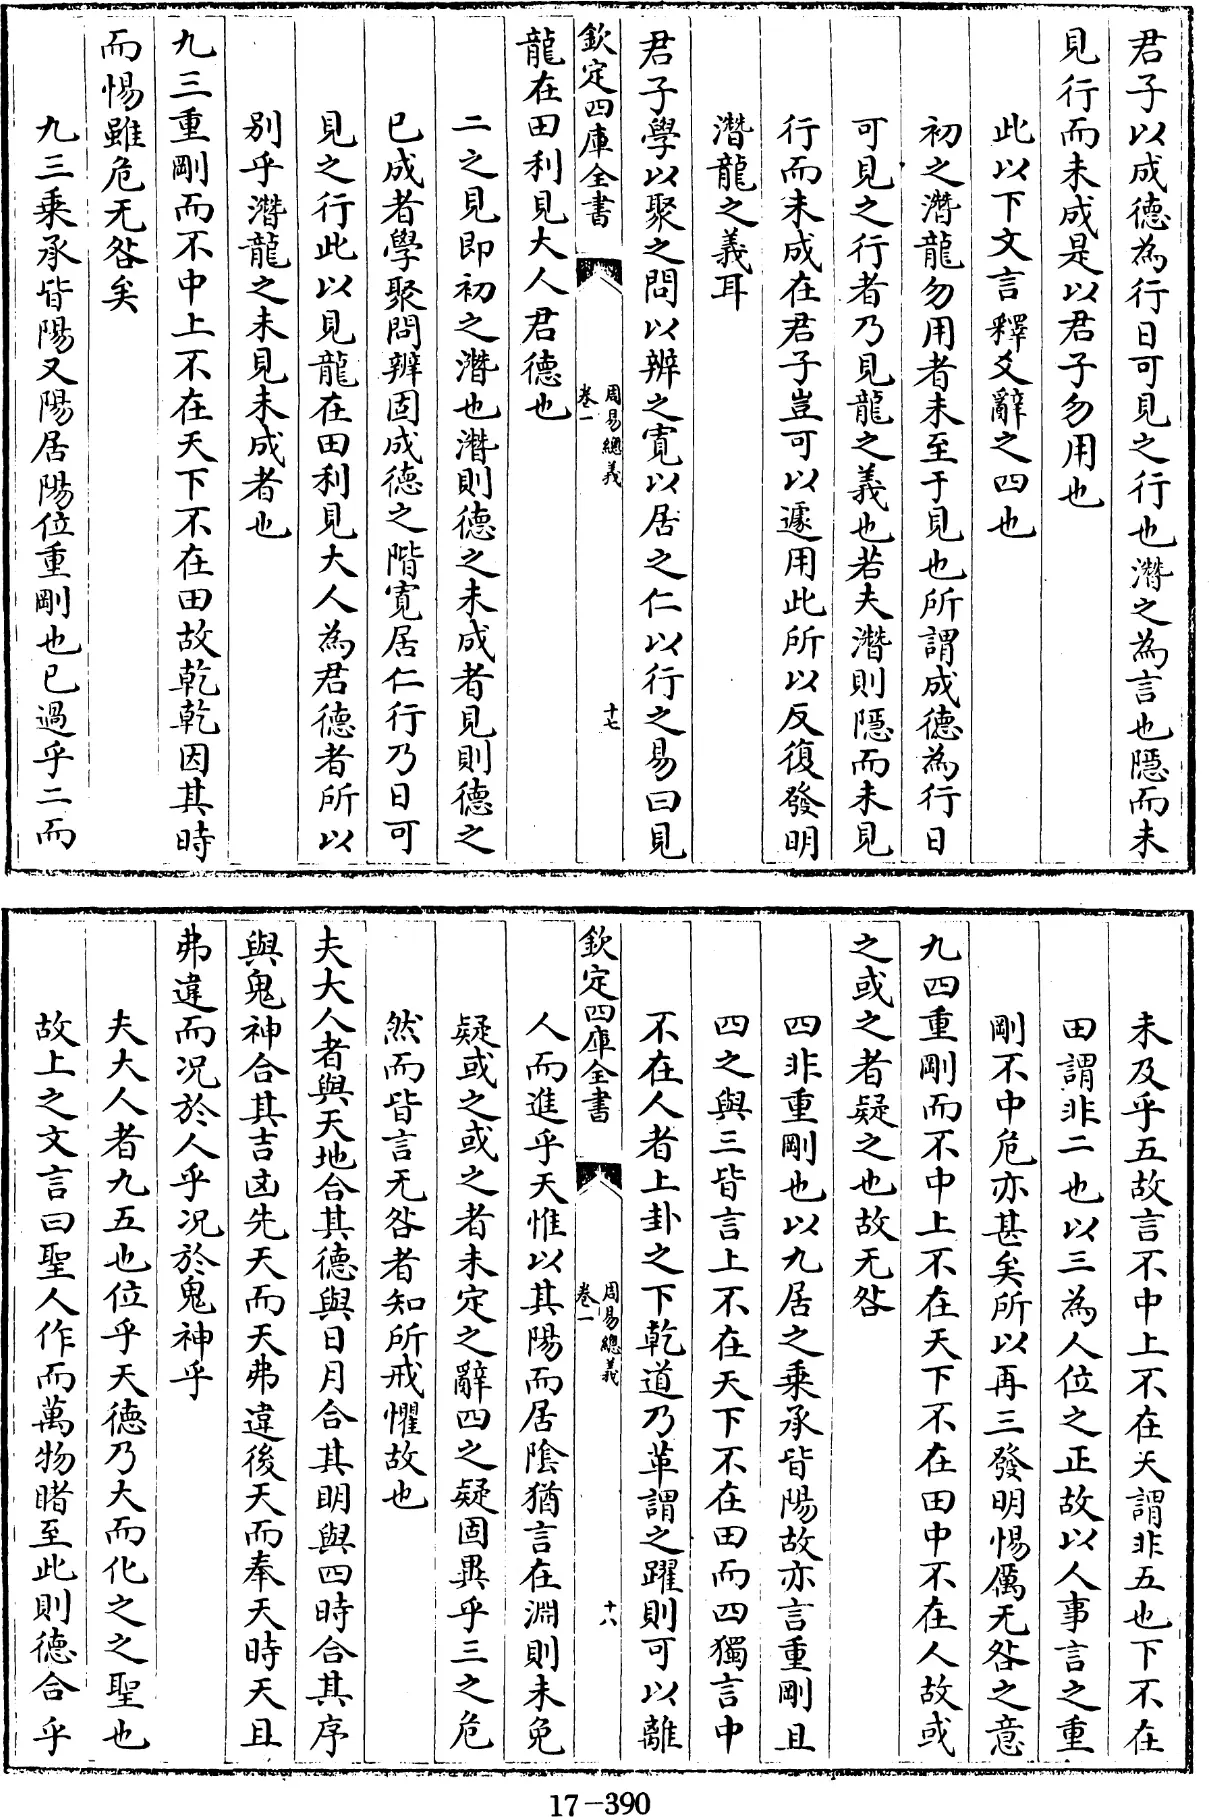 君子以成德為行日可見之行也潛之為言也隱而未
見行而未成是以君子勿用也
此以下文言釋爻辭之四也
初之潛龍勿用者未至于見也所謂成德為行日
可見之行者乃見龍之義也若夫潛則隱而未見
行而未成在君子豈可以遽用此所以反復發明
潛龍之義耳
君子學以聚之問以辨之寬以居之仁以行之易曰見
欽定四庫全書
周易總義
卷一
十七
龍在田利見大人君德也
二之見即初之潛也潛則德之未成者見則德之
已成者學聚問辨固成德之階寬居仁行乃日可
見之行此以見龍在田利見大人為君德者所以
别乎潛龍之未見未成者也
九三重剛而不中上不在天下不在田故乾乾因其時
而惕雖危无咎矣
九三乘承皆陽又陽居陽位重剛也已過乎二而
未及乎五故言不中上不在天謂非五也下不在
田謂非二也以三為人位之正故以人事言之重
剛不中危亦甚矣所以再三發明惕厲无咎之意
九四重剛而不中上不在天下不在田中不在人故或
之或之者疑之也故无咎
四非重剛也以九居之乘承皆陽故亦言重剛且
四之與三皆言上不在天下不在田而四獨言中
不在人者上卦之下乾道乃革謂之躍則可以離
欽定四庫全書
周易總義
卷一
十八
人而進乎天惟以其陽而居陰猶言在淵則未免
疑或之或之者未定之辭四之疑固異乎三之危
然而皆言无咎者知所戒懼故也
夫大人者與天地合其德與日月合其明與四時合其序
與鬼神合其吉凶先天而天弗違後天而奉天時天且
弗違而况於人乎况於鬼神乎
夫大人者九五也位乎天德乃大而化之之聖也
故上之文言曰聖人作而萬物睹至此則德合乎
17-390